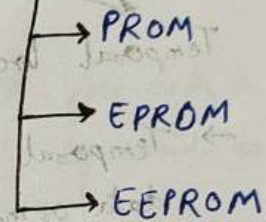 PROM
EPROM
EEPROM